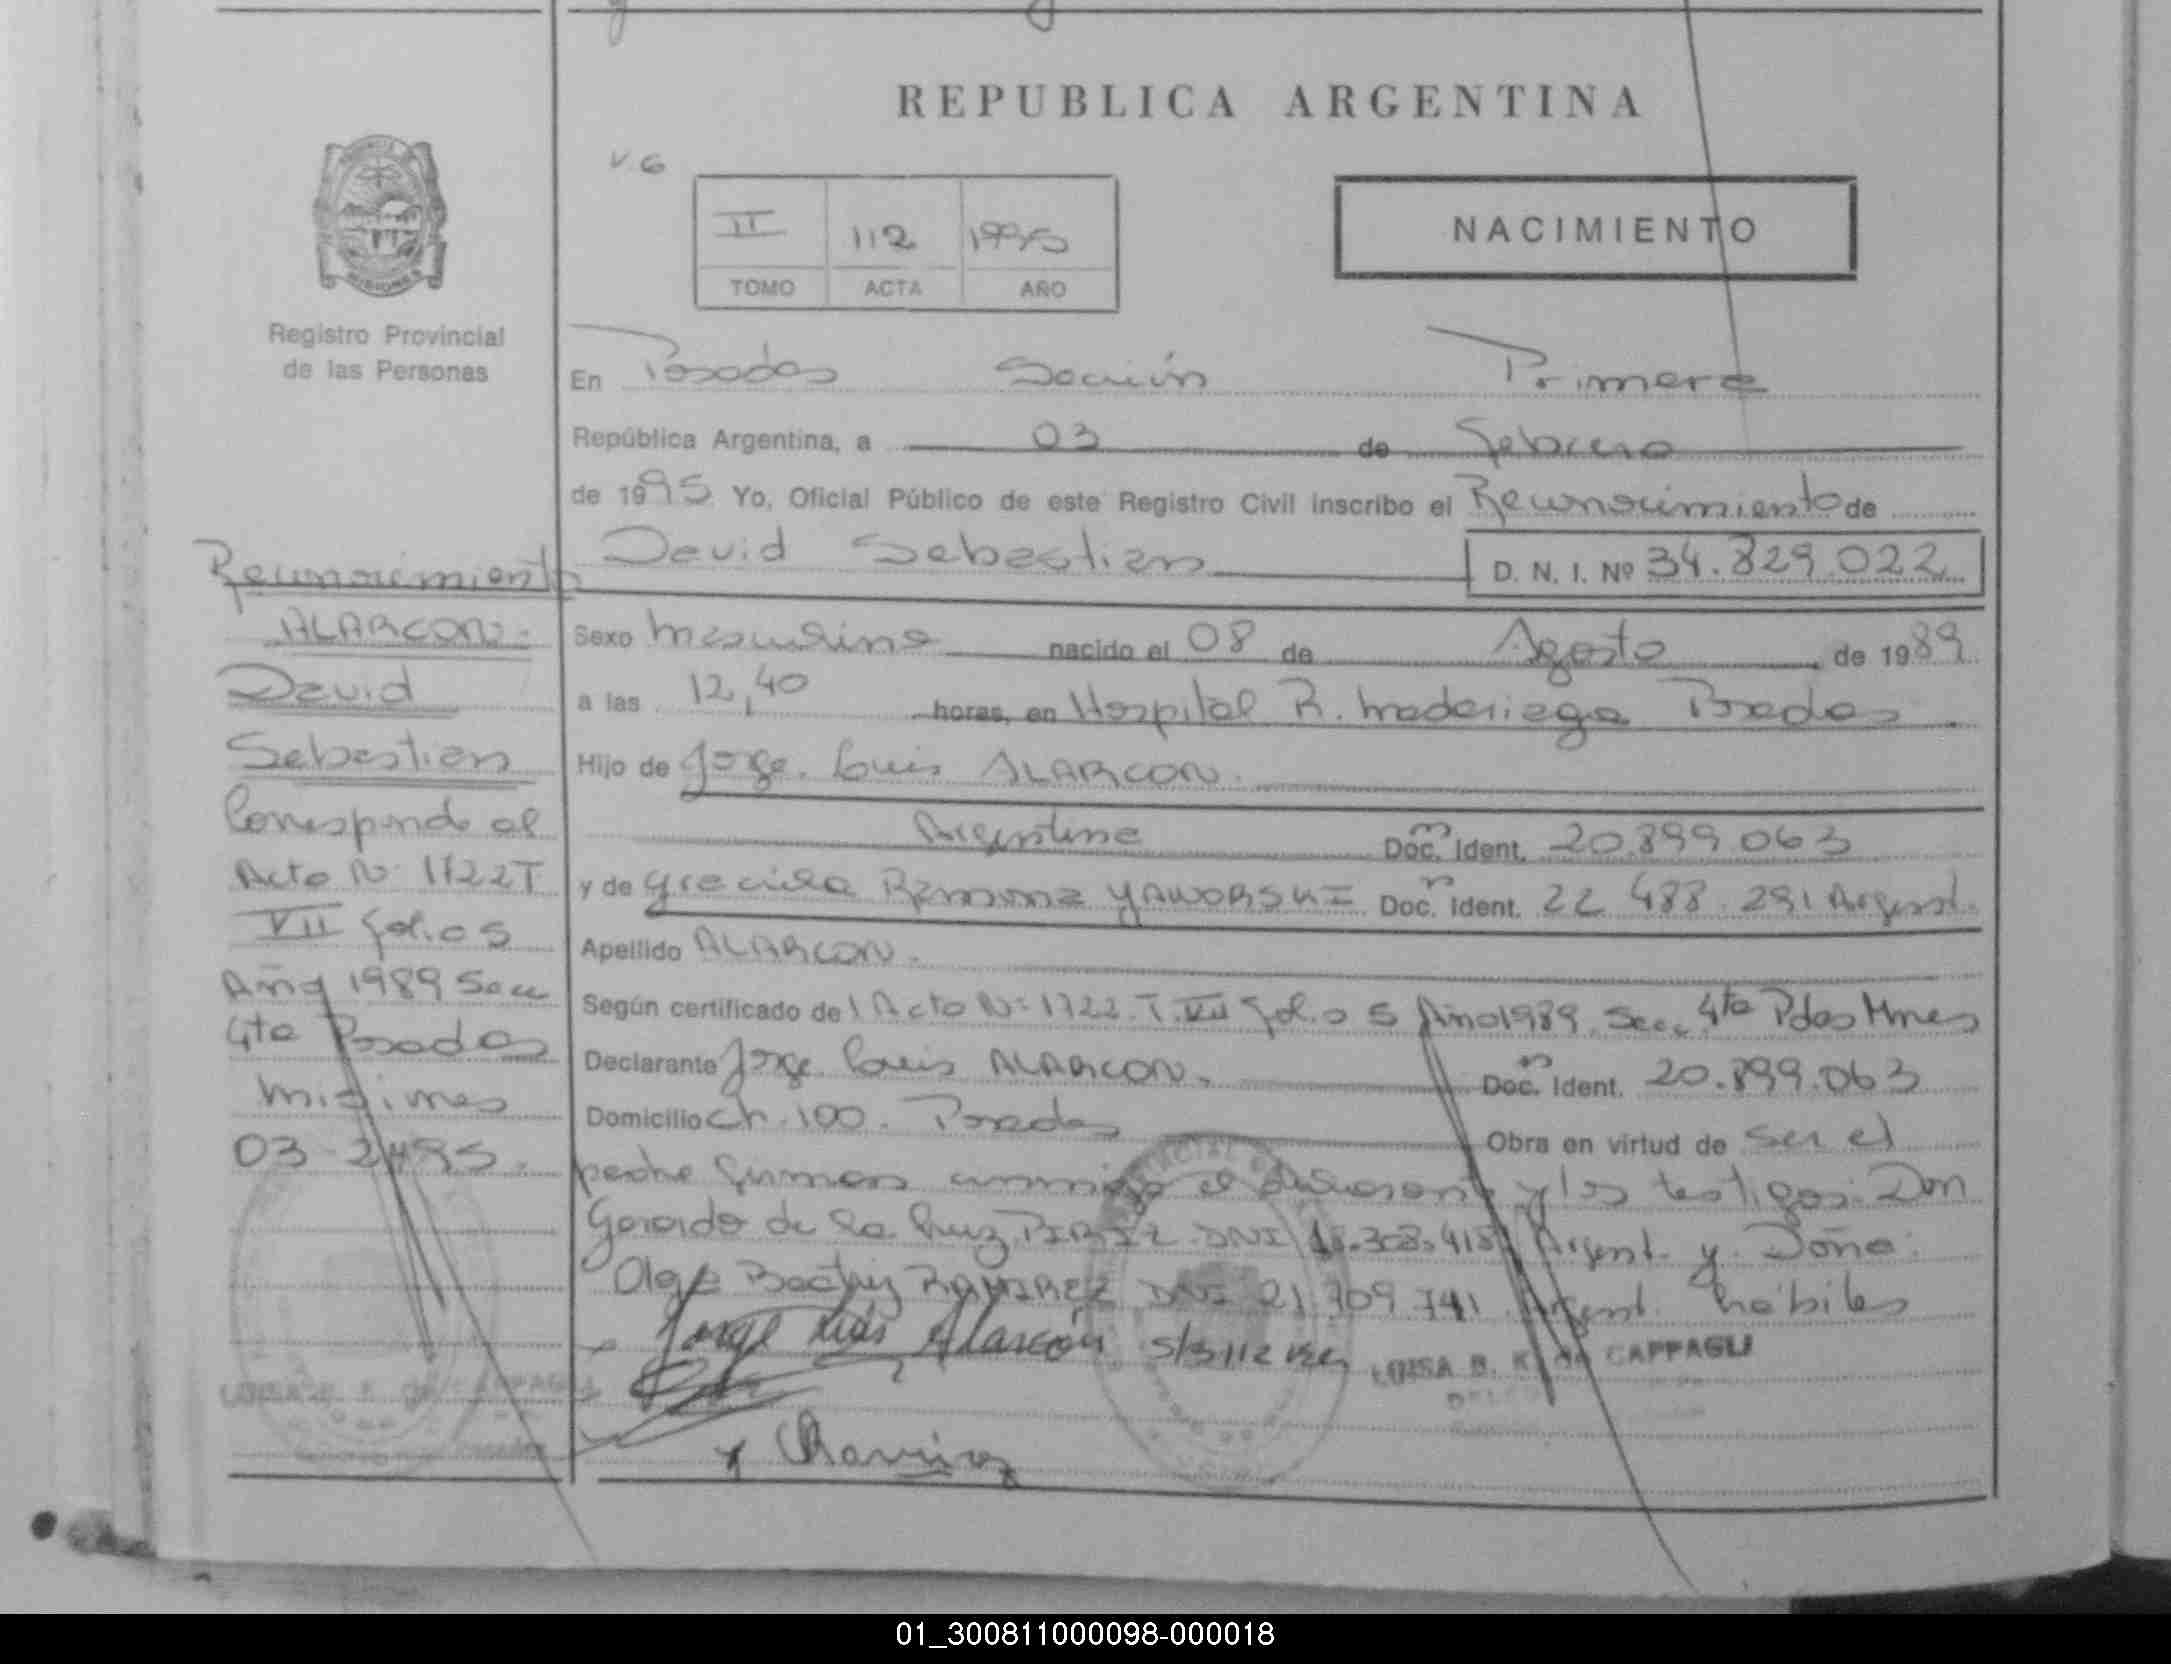 REPUBLICA ARGENTINA
V. 6
II 112 1995
TOMO ACTA AÑO
NACIMIENTO
MISIONES
Registro Provincial
de las Personas
En Posadas Sección Primera
República Argentina, a 03 de Febrero
de 1995 Yo, Oficial Público de este Registro Civil inscribo el Reconocimiento de
David Sebastian D. N. I. Nº 34.829.022
Sexo Masculino nacido el 08 de Agosto de 1989
a las 12,40 horas, en Hospital R. Madariaga Posadas
Hijo de Jorge Luis ALARCON.
Argentina Doc. Ident. 20.899.063
y de Graciela Ramona YAWORSKI Doc. Ident. 22 488.291 Argent.
Apellido ALARCON.
Según certificado de l Acta Nº 1722. T. VII Folio 5 Año 1989. Secc. 4ta Pdas Mnes
Declarante Jorge Luis ALARCON. Doc. Ident. 20.899.063
Domicilio Ch. 100. Posadas Obra en virtud de ser el
padre firman conmigo el declarante y los testigos: Don
Gerardo de la Cruz DNI 18.308.418 Argent. y Doña:
Olga Beatriz RAMIREZ DNI 21.709.741 Argent. hábiles
Jorge Luis Alarcón S/B 112
LUISA B. K. de CAPPAGLI
Ramirez
Reconocimiento
ALARCON.
David
Sebastian
Corresponde al
Acta Nº 1722 T
VII Folio 5
Año 1989 Secc
4ta Posadas
Misiones
03-2-95.
LUISA B. K. de CAPPAGLI
01_300811000098-000018